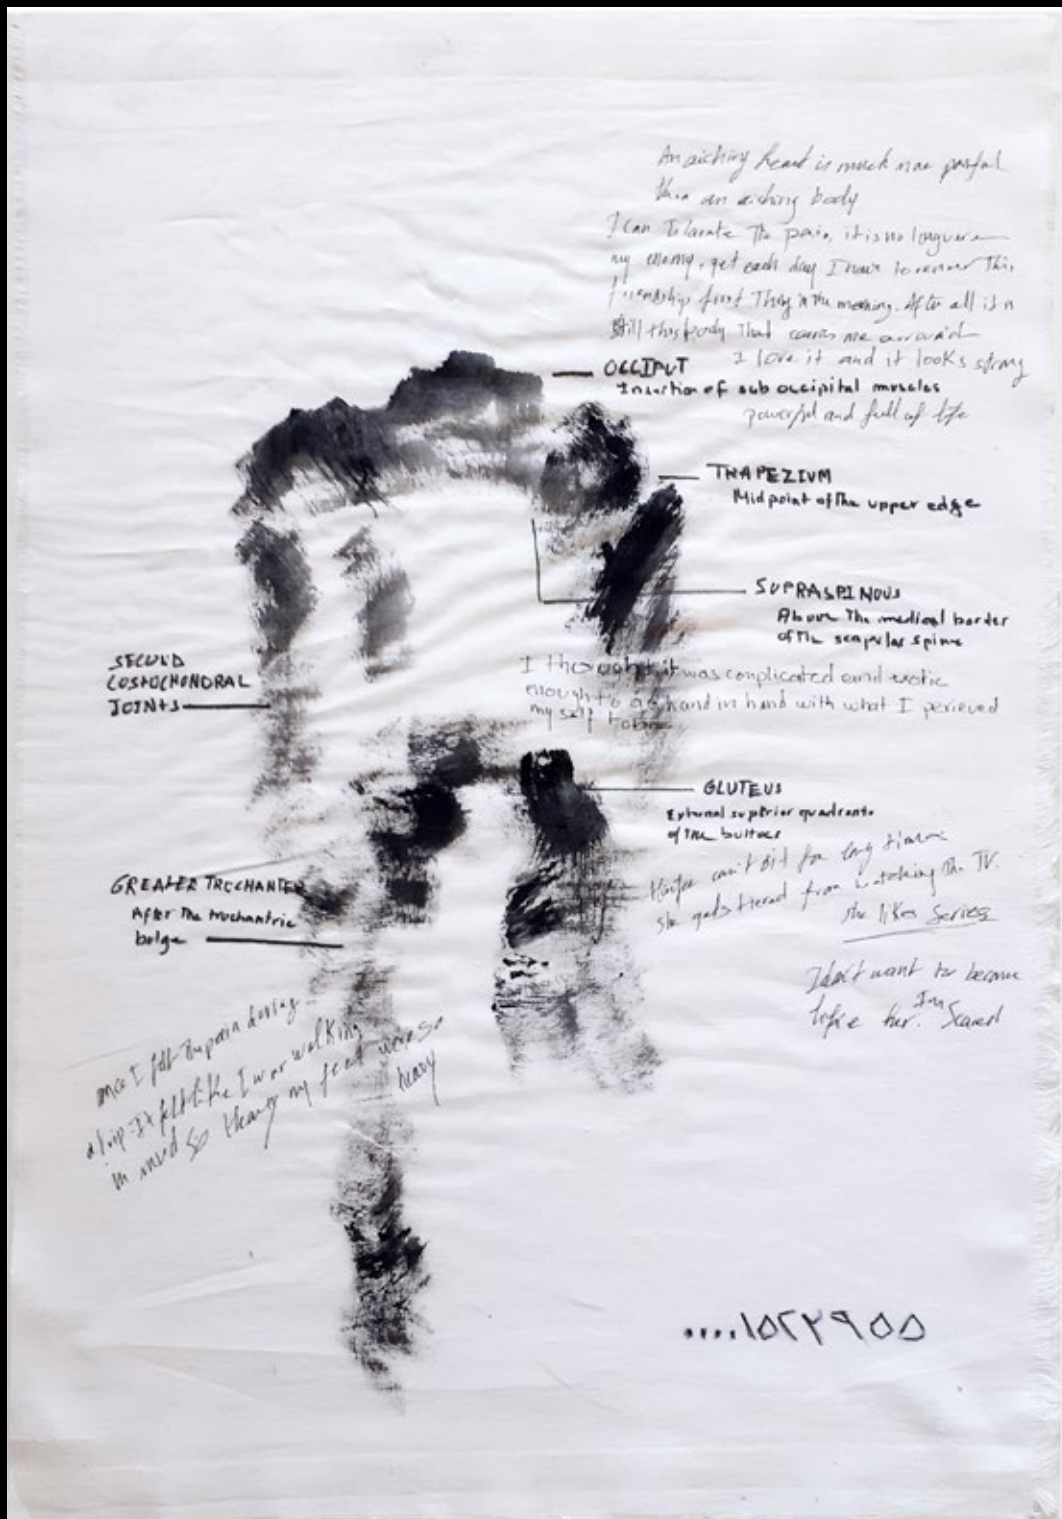 An aiching heart is much more painful
than an aiching body
I can tolarate the pain, it is no longuer
my enemy, yet each day I have to renew this
friendship first thing in the morning. After all it is
still this body that carries me arround
I love it and it looks strong
powerful and full of life
OCCIPUT
Insertion of sub occipital muscles
TRAPEZIUM
Midpoint of the upper edge
SUPRASPINOUS
Above the medical border
of the scapular spine
SECOND
COSTOCHONDRAL
JOINTS
I thought it was complicated and exotic
enough to go hand in hand with what I perieved
my self to be
GLUTEUS
External superior quadrants
of the buttocs
can't sit for long time
she gets tiered from watching the TV.
she likes series
I don't want to become
like her. I'm scared
GREATER TROCHANTER
After the trochantric
bolge
once I felt the pain during
a trip It felt like I was walking
in mud so heavy my feet were so
heavy